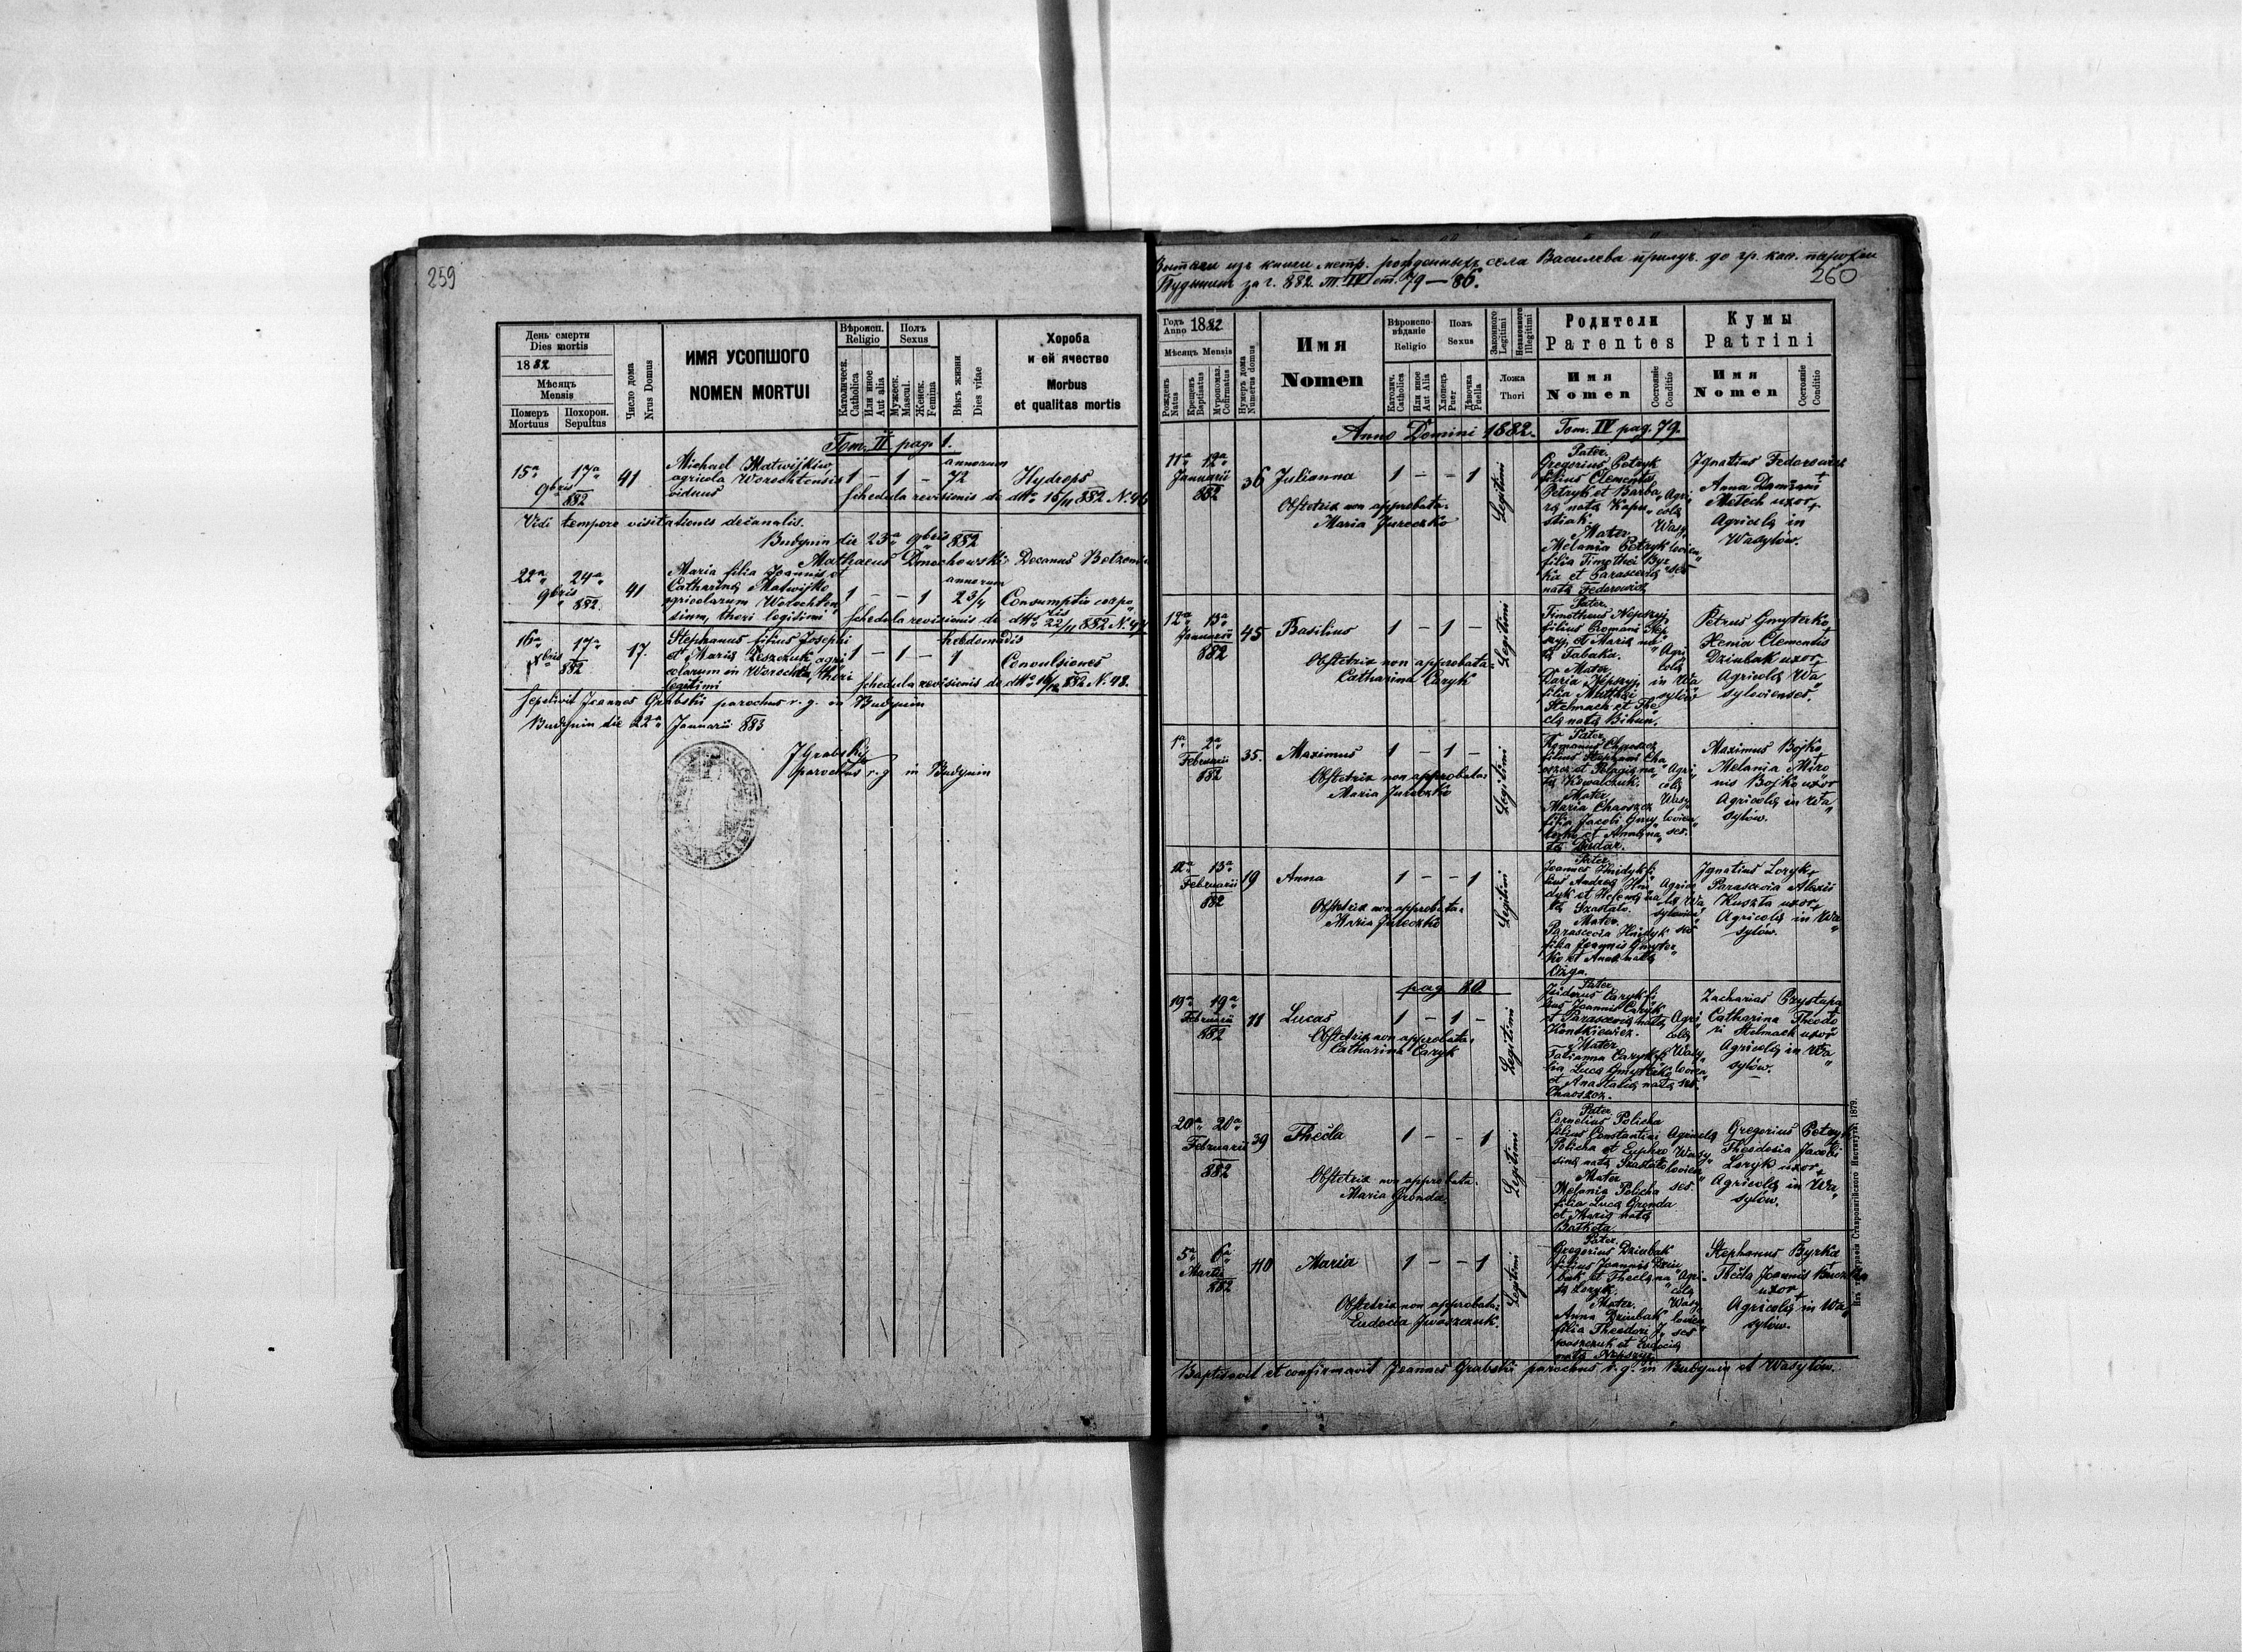 259
День смерти
Dies mortis
1882
Мѣсяць
Mensis
Померъ
Mortuus
Похорон.
Sepultus
Число дома
Nrus Domus
ИМЯ УСОПШОГО
NOMEN MORTUI
Вѣроисп.
Religio
Католическ.
Catholica
Или иное
Aut alia
Полъ
Sexus
Мужеск.
Mascul.
Женск.
Femina
Вѣкъ жизни
Dies vitae
Хороба
и ей ячество
Morbus
et qualitas mortis
Tom. II pag. 1.
15a 17a
9bris
882
41
Michael Matwijków
agricola Worochtensis
viduus
1 — 1 —
annorum
72
Hydrops
Schedula revisionis de dtto 15/11 882 N. 46
Vidi tempore visitationis decanalis.
Budynin die 23a 9bris 882
Mathaeus Dmochowski Decanus Belzensis
22a 24a
9bris
882
41
Maria filia Joannis et
Catharina Matwijko
agricolarum Worochten
sium, thori legitimi
1 — — 1
annorum
2 3/4
Consumptio corpo
ris
Schedula revisionis de dtto 22/11 882 N. 47
16a 17a
Xbris
882
17.
Stephanus filius Josephi
et Maria Leszczuk agri
colarum in Worochta, thori
legitimi
1 — 1 —
hebdomadis
1
Convulsiones
Schedula revisionis de dtto 16/12 882 N. 48.
Sepelivit Joannes Grabskij parochus r. g. in Budynin
Budynin die 22a Januarii 883
JGrabskij
parochus r. g in Budynin
Вытяги изъ книги метр. рожденныхъ села Василева прилуч. до гр. кат. парохіи
Будынинъ за г. 882. т. IV ст. 79—86.
260
Годъ
Anno 1882
Мѣсяцъ Mensis
Рожденъ
Natus
Крещенъ
Baptisatus
Мvропомаз.
Confirmatus
Нумеръ дома
Numerus domus
Имя
Nomen
Вѣроиспо-
вѣданіе
Religio
Католич.
Catholica
Или иное
Aut Alia
Полъ
Sexus
Хлопецъ
Puer
Дѣвочка
Puella
Законного
Legitimi
Незаконного
Illegitimi
Ложа
Thori
Родители
Parentes
Имя
Nomen
Состояніе
Conditio
Кумы
Patrini
Имя
Nomen
Состояніе
Conditio
Anno Domini 1882. Tom. IV pag. 79.
11a 12a
Januarii
882
36
Julianna
1 — — 1
Legitimi
Obstetrix non approbata
Maria Jureczko
Pater
Gregorius Petryk
filius Clementis
Petryk et Barba
ra nata Kapu
stiak.
Mater
Melania Petryk
filia Timothei By
ka et Parascevia
nata Fedorowicz
Agri
cola
Wasy
lovien
ses
Ignatius Fedorowicz
+
Anna Damiani
Melech uxor +
Agricola in
Wasylów.
12a 13a
Januarii
882
45
Basilius
1 — 1 —
Legitimi
Obstetrix non approbata
Catharina Caryk
Pater
Timotheus Nepszyj
filius Romani Nep
szyj et Maria na
ta Tabaka.
Mater
Daria Nepszyj
filia Matthaei
Stelmach et The
cla nata Bihun.
Agri
cola
in Wa
sylów
Petrus Gmyterko
+
Xenia Clementis
Dziubak uxor +
Agricola Wa
sylovienses.
1a 2a
Februarii
882
35.
Maximus
1 — 1 —
Legitimi
Obstetrix non approbata
Maria Jureczko
Pater
Romanus Chaoszcz
filius Stephani Cha
oszcz et Pelagia na
ta Kowalczuk.
Mater
Maria Chaoszcz
filia Jacobi Gmy
terko et Anna na
ta Dudar.
Agri
cola
Wasy
lovien
ses.
Maximus Bojko
+
Melania Miro
nis Bojko uxor
Agricola in Wa
sylów.
12a 13a
Februarii
882
19
Anna
1 — — 1
Legitimi
Obstetrix non approbata
Maria Jureczko
Pater
Joannes Hnidyk fi
lius Andrea Hni
dyk et Helena na
ta Szastalo.
Mater
Parascevia Hnidyk
filia Joannis Gmyter
ko et Anna nata
Ożga.
Agrico
la Wa
sylovien
ses
Ignatius Loryk +
Parascevia Alexii
Kuszta uxor +
Agricola in Wa
sylów.
pag. 80
19a 19a
Februarii
882
11
Lucas
1 — 1 —
Legitimi
Obstetrix non approbata
Catharina Caryk
Pater
Isidorus Caryk fi
lius Joannis Caryk
et Parascevia nata
Kontkiewicz.
Mater
Tatianna Caryk fi
lia Luca Gmyterko
et Anastasia nata
Chaoszcz.
Agri
cola
Wasy
lovien
ses.
Zacharias Przystupa
+
Catharina Theodo
ri Stelmach uxor
Agricola in Wa
sylów.
20a 20a
Februarii
882
39
Thecla
1 — — 1
Legitimi
Obstetrix non approbata.
Maria Gronda.
Pater
Cornelius Policha
filius Constantini
Policha et Euphro
sina nata Szastalo
Mater
Melania Policha
filia Luca Gronda
et Maria nata
Batkota.
Agricola
Wasy
lovien
ses.
Gregorius Petryk
+
Theodosia Jacobi
Loryk uxor +
Agricola in Wa
sylów.
5a 6a
Martii
882
40
Maria
1 — — 1
Legitimi
Obstetrix non approbata
Eudocia Jwaszczuk.
Pater
Gregorius Dziubak
filius Joannis Dziu
bak et Thecla na
ta Loryk.
Mater.
Anna Dziubak
filia Theodori J
waszczuk et Eudocia
nata Nepszyj.
Agri
cola
Wasy
lovien
ses
Stephanus Byrka
+
Thecla Joannis
uxor +
Agricola in Wa
sylów.
Baptisavit et confirmavit Joannes Grabskij parochus r. g. in Budynin et Wasylów.
Изъ типографіи Ставропигійского Института. 1879.